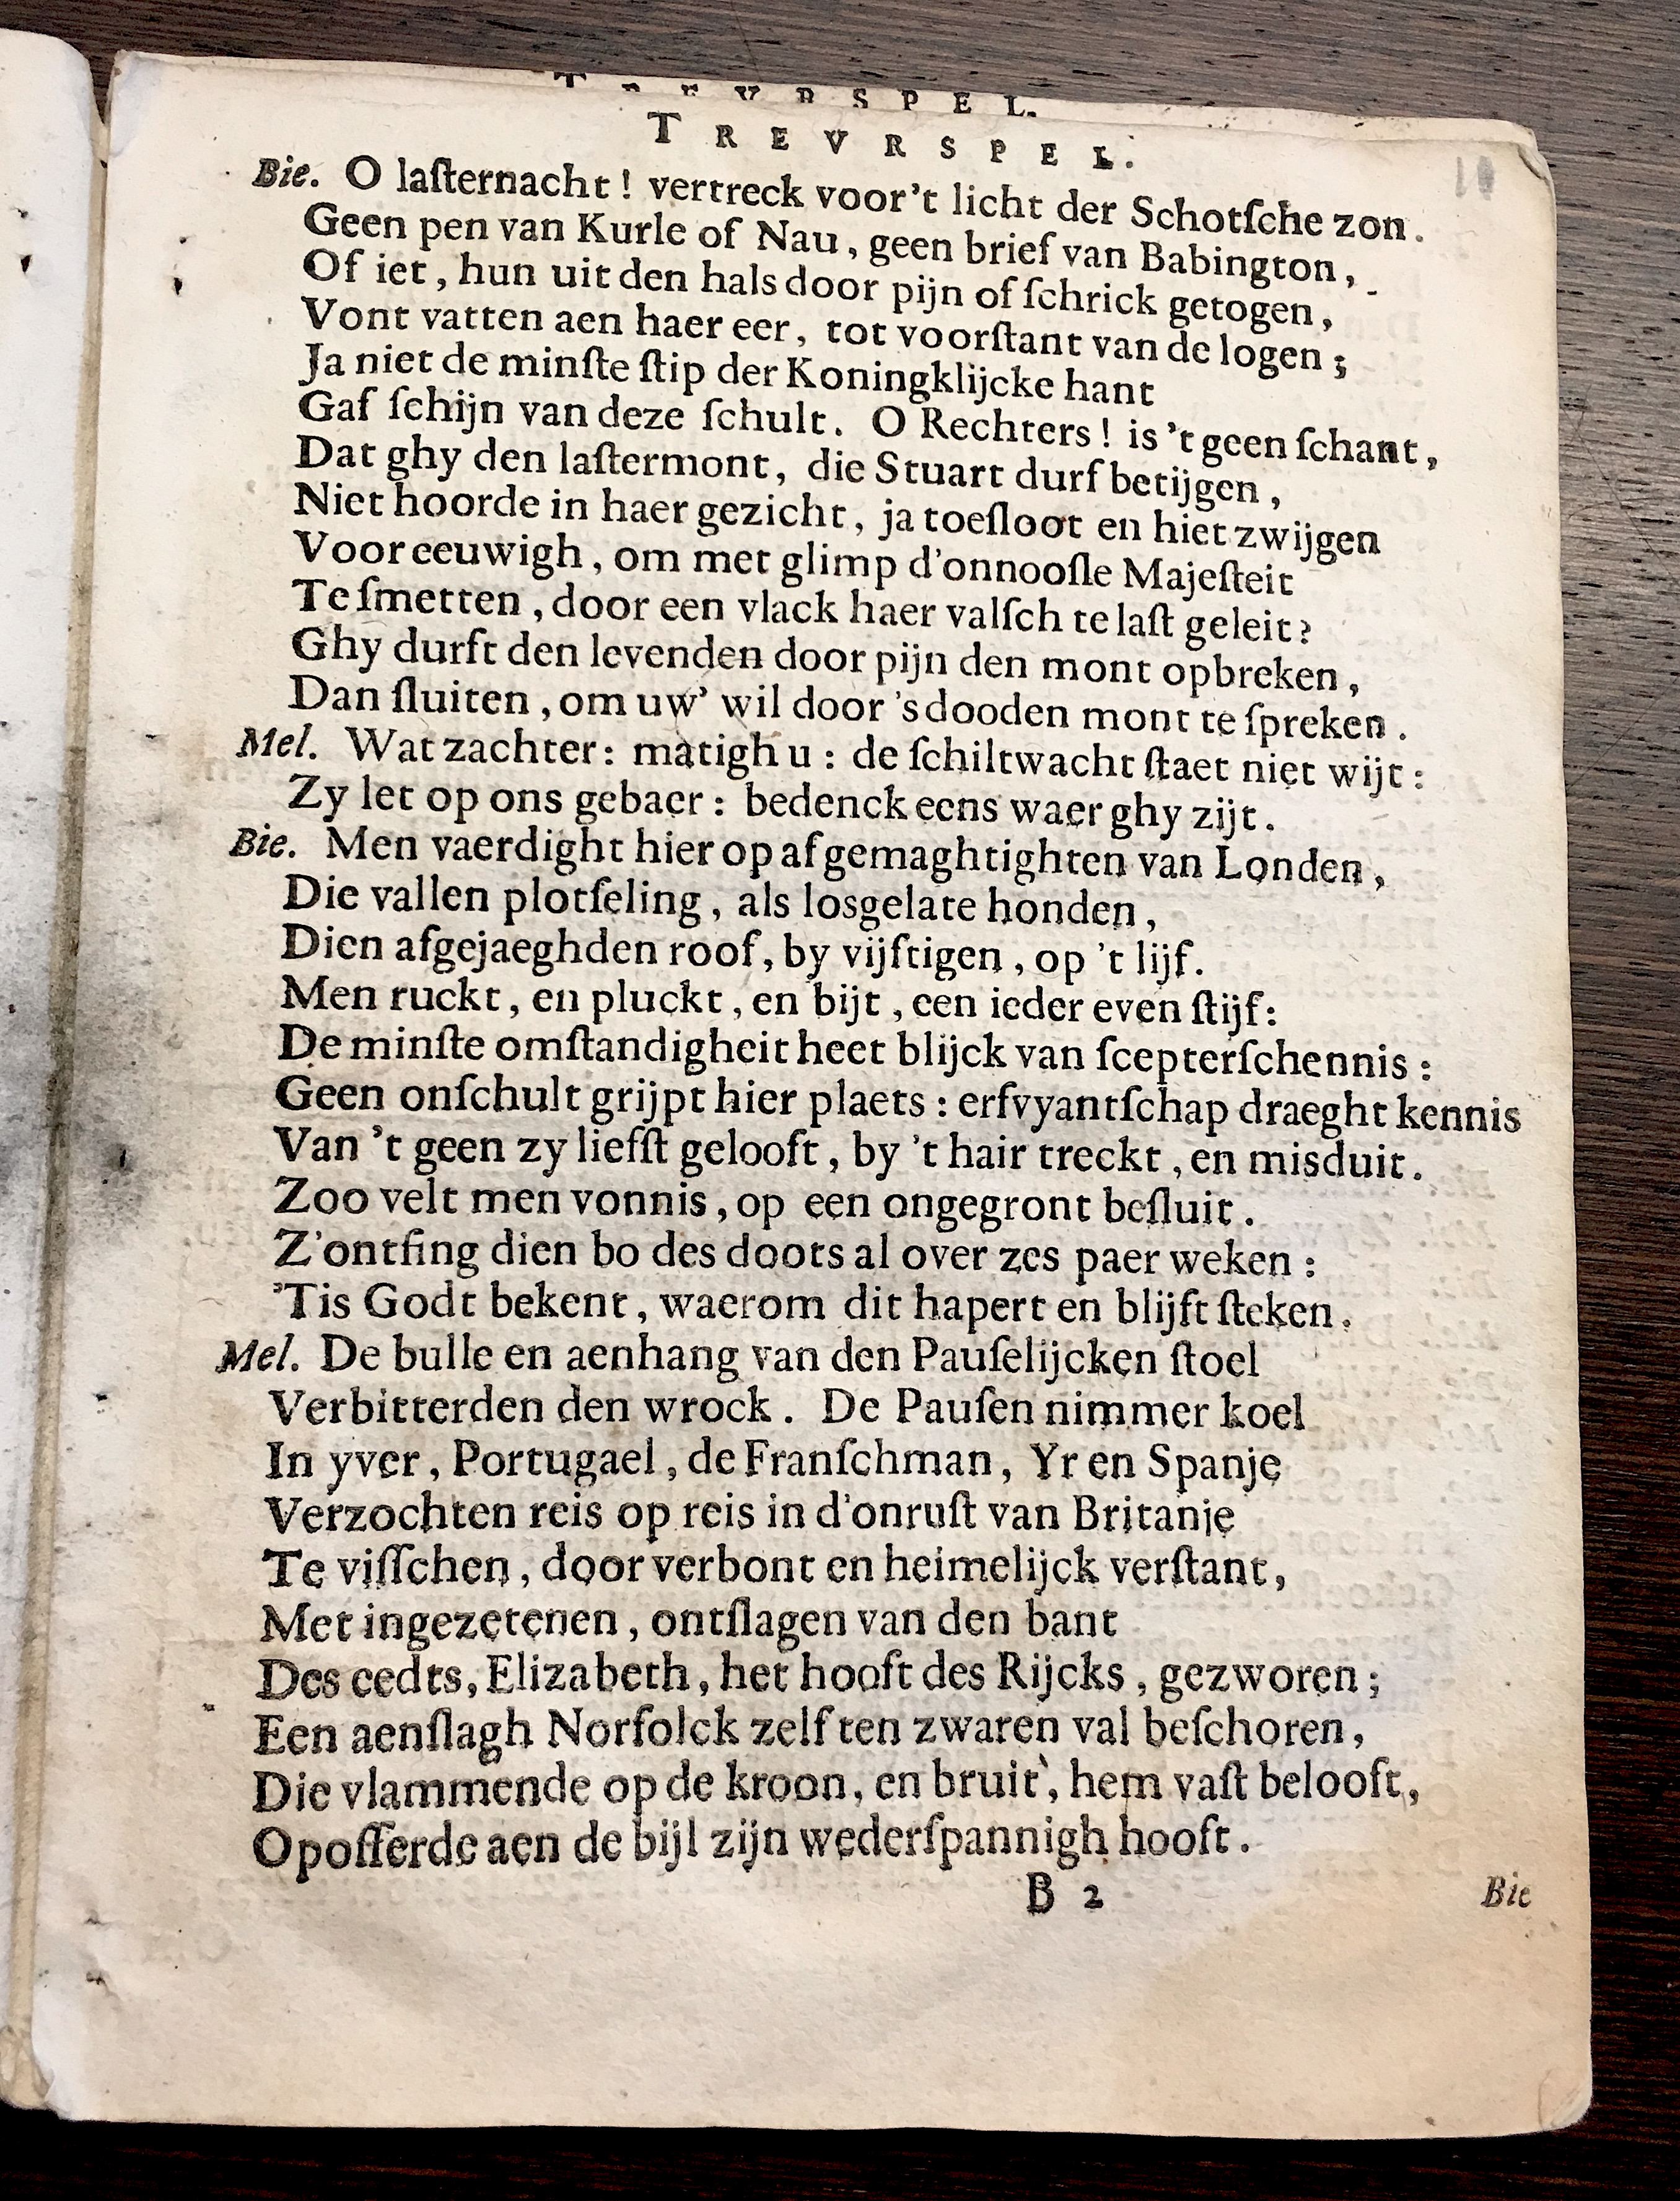 TREVRSPEL.
Bie. O laſternacht! vertreck voor't licht der Schotſche zon.
Geen pen van Kurle of Nau, geen brief van Babington,
Of iet, hun uit den hals door pijn of ſchrick getogen,
Vont vatten aen haer eer, tot voorſtant van de logen;
Ja niet de minſte ſtip der Koningklijcke hant
Gaf ſchijn van deze ſchult. O Rechters! is 't geen ſchant,
Dat ghy den laſtermont, die Stuart durf betijgen,
Niet hoorde in haer gezicht, ja toeſloot en hiet zwijgen
Voor eeuwigh, om met glimp d'onnooſle Majeſteit
Te ſmetten, door een vlack haer valſch te laſt geleit?
Ghy durft den levenden door pijn den mont opbreken,
Dan ſluiten, om uw' wil door 's dooden mont te ſpreken.
Mel. Wat zachter: matigh u: de ſchiltwacht ſtaet niet wijt:
Zy let op ons gebaer: bedenck eens waer ghy zijt.
Bie. Men vaerdight hier op afgemaghtighten van Londen,
Die vallen plotſeling, als losgelate honden,
Dien afgejaeghden roof, by vijftigen, op 't lijf.
Men ruckt, en pluckt, en bijt, een ieder even ſtijf:
De minſte omſtandigheit heet blijck van ſcepterſchennis:
Geen onſchult grijpt hier plaets: erfvyantſchap draeght kennis
Van 't geen zy liefſt gelooft, by 't hair treckt, en misduit.
Zoo velt men vonnis, op een ongegront beſluit.
Z'ontfing dien bo des doots al over zes paer weken:
'Tis Godt bekent, waerom dit hapert en blijft ſteken.
Mel. De bulle en aenhang van den Pauſelijcken ſtoel
Verbitterden den wrock. De Pauſen nimmer koel
In yver, Portugael, de Franſchman, Yr en Spanje
Verzochten reis op reis in d'onruſt van Britanje
Te viſſchen, door verbont en heimelijck verſtant,
Met ingezetenen, ontſlagen van den bant
Des eedts, Elizabeth, het hooft des Rijcks, gezworen;
Een aenſlagh Norfolck zelf ten zwaren val beſchoren,
Die vlammende op de kroon, en bruit, hem vaſt belooft,
Opofferde aen de bijl zijn wederſpannigh hooft.
B 2
Bie